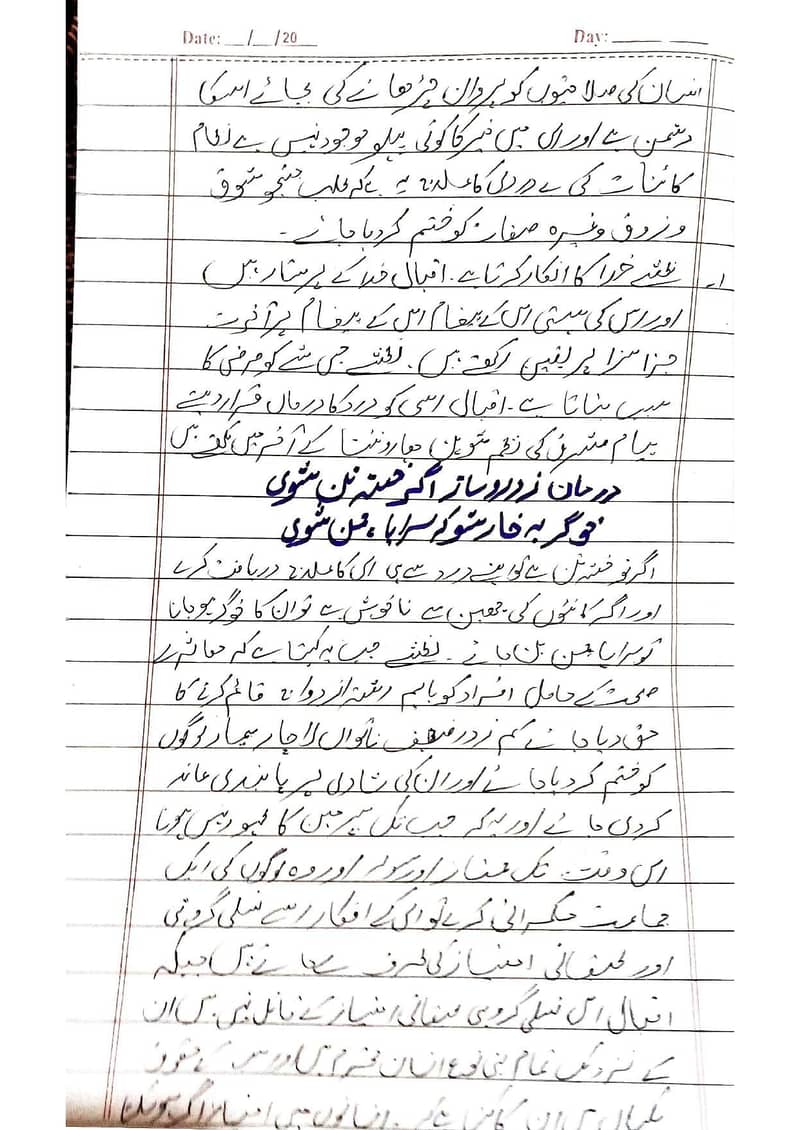 Date: __/__/20__ Day: ____
انسان کی صلاحیتوں کو پروان چڑھانے کی بجائے اسکا
دشمن ہے اور اس میں خیر کا کوئی پہلو موجود نہیں ہے نظام
کائنات کی بے دردی کا علاج یہ ہے کہ طلب جستجو شوق
و ذوق وغیرہ صفات کو ختم کر دیا جائے۔
۱۔ نطشے خدا کا انکار کرتا ہے۔ اقبال خدا کے پرستار ہیں
اور اس کی ہستی اس کے پیغام اس کے پیغام پر آخرت
جزا سزا پر یقین رکھتے ہیں۔ نطشے جس شے کو مرض کا
سبب بتاتا ہے۔ اقبال اسی کو درد کا درماں قرار دیتے
پیام مشرق کی نظم شوپن ہار و نٹشا کے آخر میں لکھتے ہیں
درمان ز درد ساز اگر خستہ تن شوی
خوگر بہ خار شو کہ سراپا چمن شوی
اگر تو خستہ تن ہے تو اپنے درد سے ہی اس کا علاج دریافت کرے
اور اگر کانٹوں کی چبھن سے ناخوش ہے تو ان کا خوگر ہو جا تا
تو سراپا چمن بن جائے۔ نطشے جب یہ کہتا ہے کہ معاشرے
صحت کے حامل افراد کو باہم رشتہ ازدواج قائم کرنے کا
حق دیا جائے کم زور ضعیف ناتواں لاچار بیمار لوگوں
کو ختم کر دیا جائے اور ان کی شادی پر پابندی عائد
کر دی جائے اور یہ کہ جب تک سپر مین کا ظہور نہیں ہوتا
اس وقت تک ممتاز اور وہ لوگوں کی ایک
جماعت حکمرانی کرے تو اس کے افکار اسے نسلی گروہی
اور طبقاتی امتیاز کی طرف لے جاتے ہیں جبکہ
اقبال اس نسلی گروہی طبقاتی امتیاز کے قائل نہیں ہیں ان
کے نزدیک تمام بنی نوع انسان محترم ہیں اور سب کے حقوق
یکساں ہیں ان کا کہنا ہے کہ انسانوں میں امتیاز اگر ہو سکتا